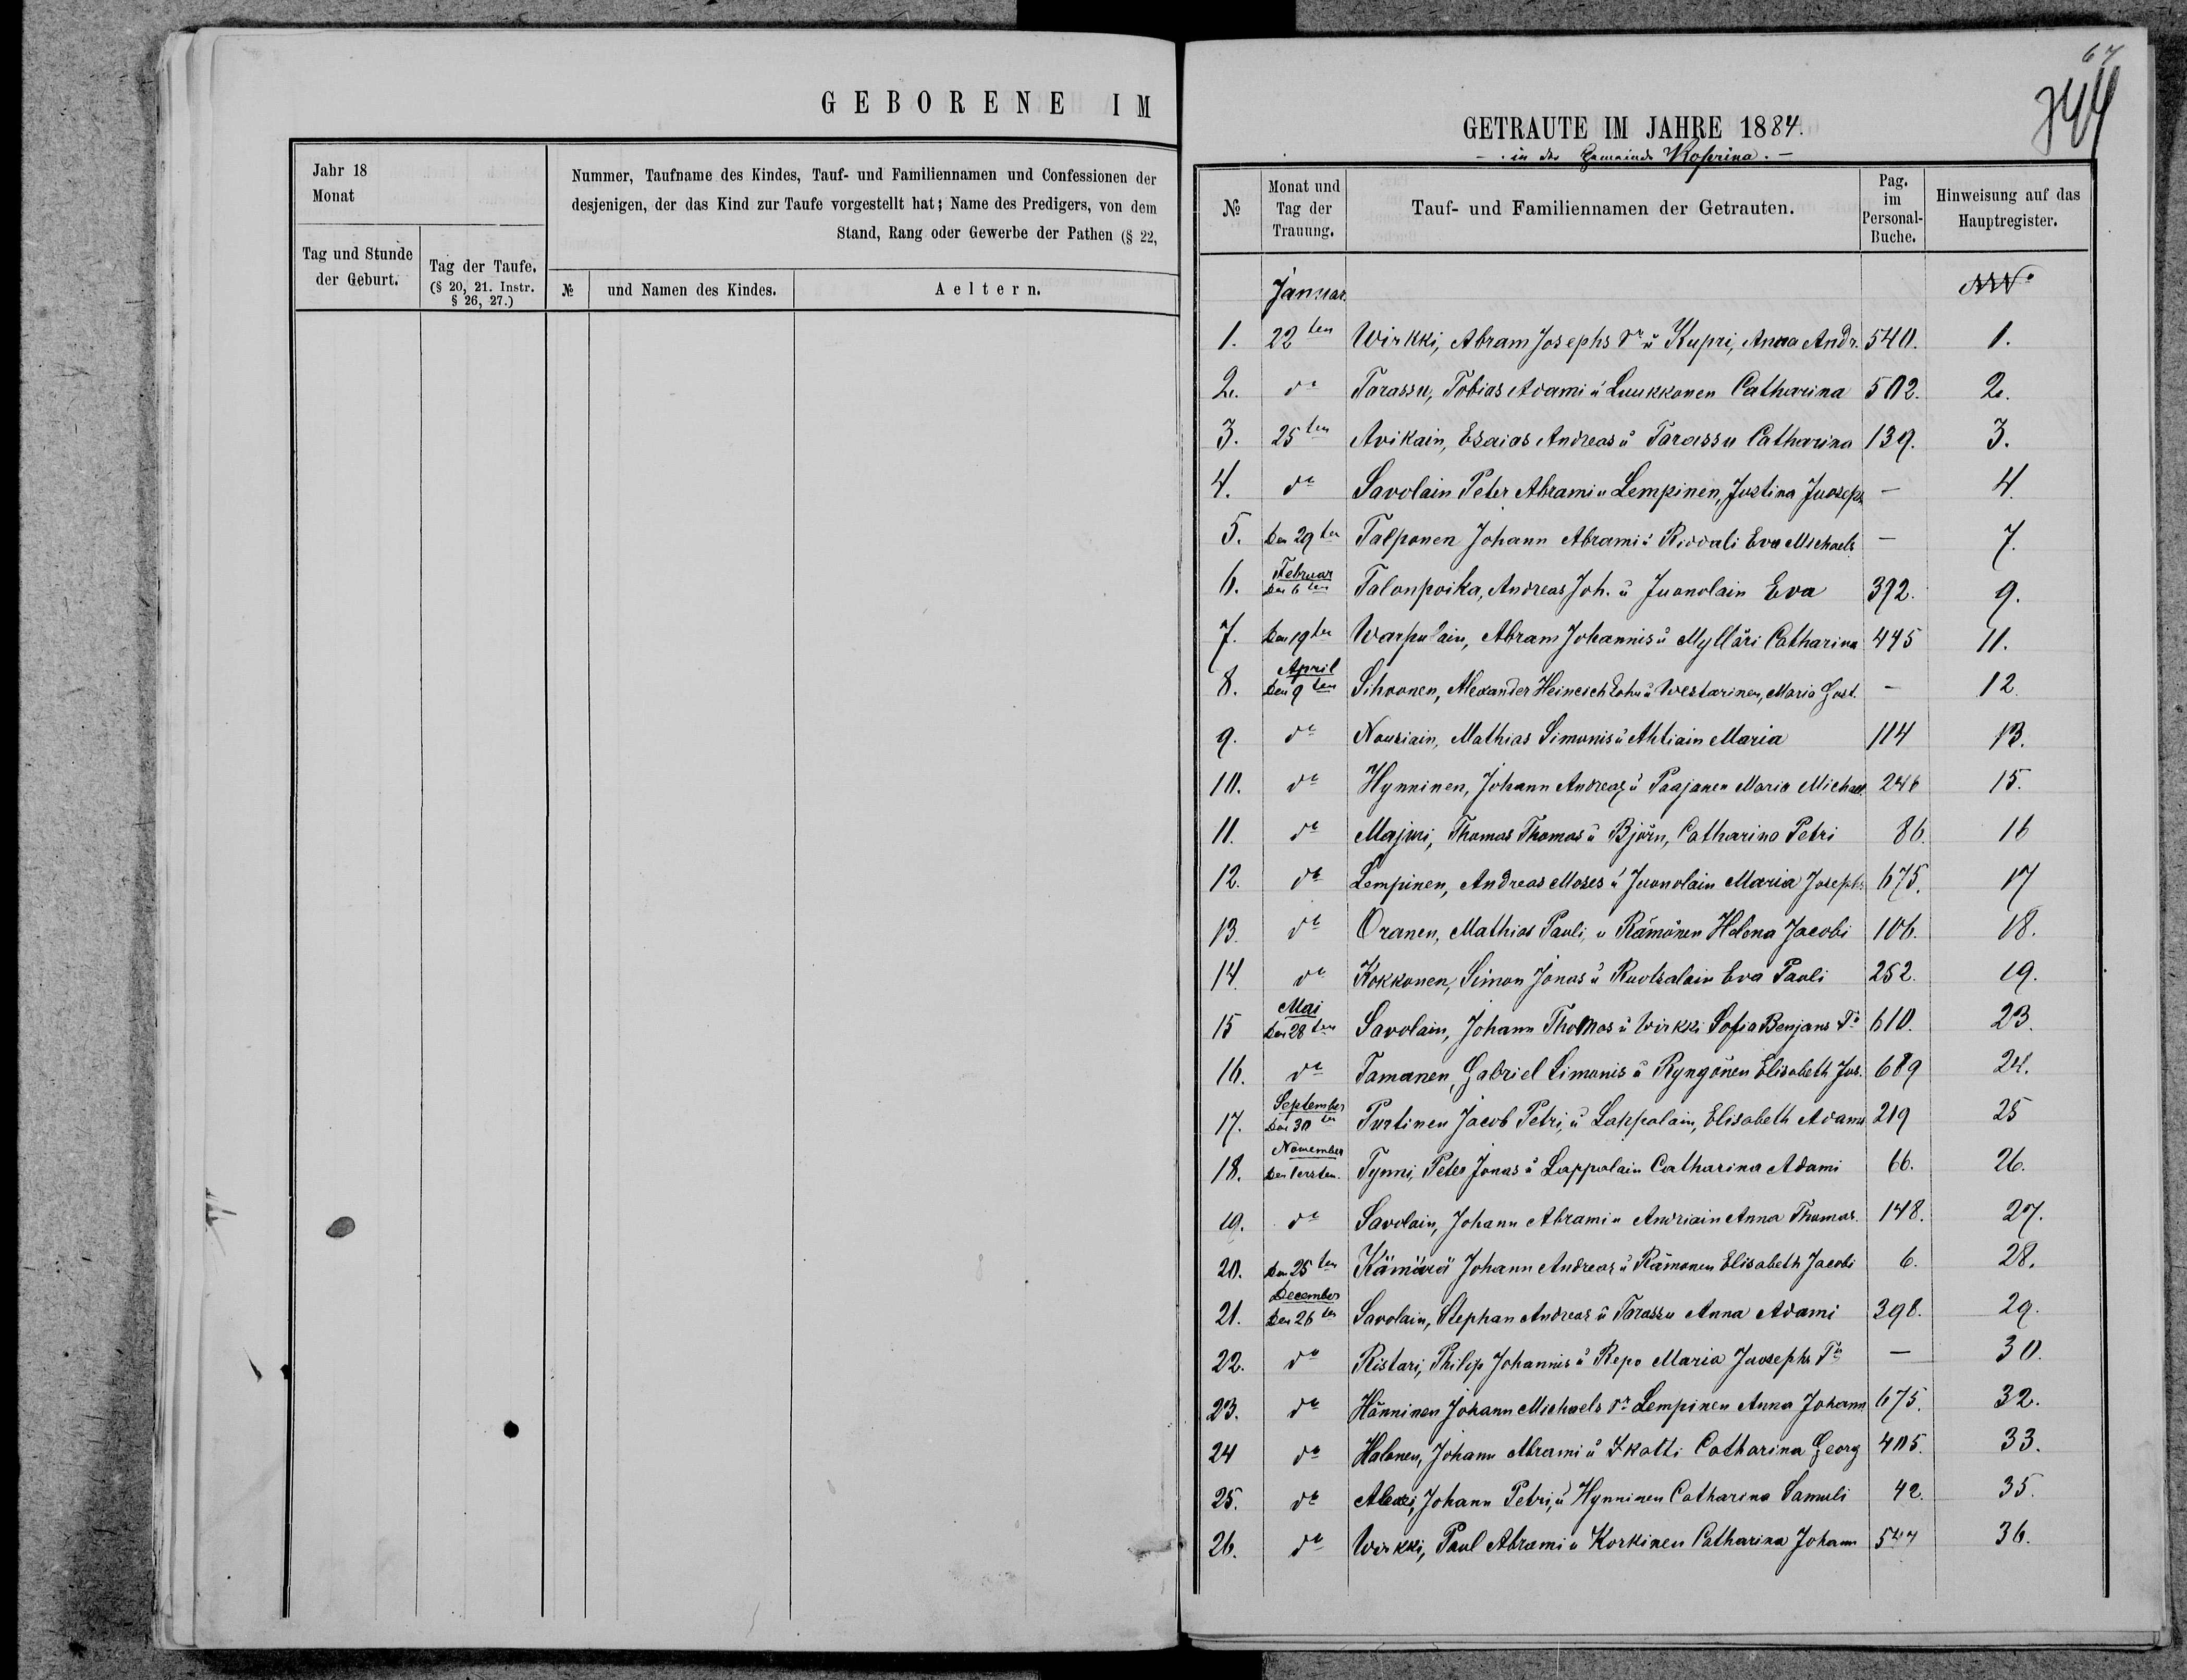 GEBORENE IM
Jahr 18
Monat
Nummer, Taufname des Kindes, Tauf- und Familiennamen und Confessionen der
desjenigen, der das Kind zur Taufe vorgestellt hat; Name des Predigers, von dem
Stand, Rang oder Gewerbe der Pathen (§ 22,
Tag und Stunde
der Geburt.
Tag der Taufe.
(§ 20, 21. Instr.
§ 26, 27.)
№ und Namen des Kindes. Aeltern.
67
GETRAUTE IM JAHRE 1884.
- in der Gemeinde Koprina. -
№
Monat und
Tag der
Trauung.
Tauf- und Familiennamen der Getrauten.
Pag.
im
Personal-
Buche.
Hinweisung auf das
Hauptregister.
Januar.
1. 22ten Wirkki, Abram Josephs Sn u Kupri, Anna Andr. 540. 1.
2. do Tarassu, Tobias Adami u Luukkonen Catharina 502. 2.
3. 25ten Avikain, Esaias Andreas u Tarassu Catharina 139. 3.
4. do Savolain Peter Abrami u Lempinen, Justina Juoseph - 4.
5. Den 29ten Talponen Johann Abrami u Riddali Eva Michaels - 7.
Februar
6. Den 6ten Talonpoika, Andreas Joh. u Juonolain Eva 392. 9.
7. Den 19ten Warpulain, Abram Johannis u Mylläri Catharina 445 11.
April
8. Den 9ten Sihvonen, Alexander Heinrich Sohn u Westarinen, Maria Gust. - 12.
9. do Nousiain, Mathias Simonis u Ahtiain Maria 114 13.
10. do Hynninen, Johann Andreas u Paajanen Maria Michael. 246 15.
11. do Majuri, Thomas Thomas u Björn, Catharina Petri 86. 16
12. do Lempinen, Andreas Moses u Juonolain Maria Josephs 675. 17
13. do Oranen, Mathias Pauli, u Rämönen Helena Jacobi 106. 18.
14. do Kokkonen, Simon Jonas u Ruotsalain Eva Pauli 252. 19.
Mai
15 Den 28ten Savolain, Johann Thomas u Wirkki Sofia Benjams Tr 610. 23.
16. do Tamanen, Gabriel Simonis u Ryngönen Elisabeth Jos. 689 24.
September
17. Den 30ten Purtinen Jacob Petri, u Lappalain, Elisabeth Adams 219 25
November
18. Den 1ersten. Tynni, Peter Jonas u Lappalain Catharina Adami 66. 26.
19. do Savolain, Johann Abrami u Andriain Anna Thomas. 148. 27.
20. Den 25ten Kämärä Johann Andreas u Rämonen Elisabeth Jacobi 6. 28.
December
21. Den 26ten Savolain, Stephan Andreas u Tarassu Anna Adami 398. 29.
22. do Ristari, Philip Johannis u Repo Maria Juosephs Tr - 30.
23. do Hänninen Johann Michaels Sn Lempinen Anna Johann 675. 32.
24 do Halonen, Johann Abrami u Skotti Catharina Georg 405. 33.
25. do Alexei, Johann Petri, u Hynninen Catharina Samuli 42. 35.
26. do Wirkki, Paul Abrami u Korkinen Catharina Johann 544 36.